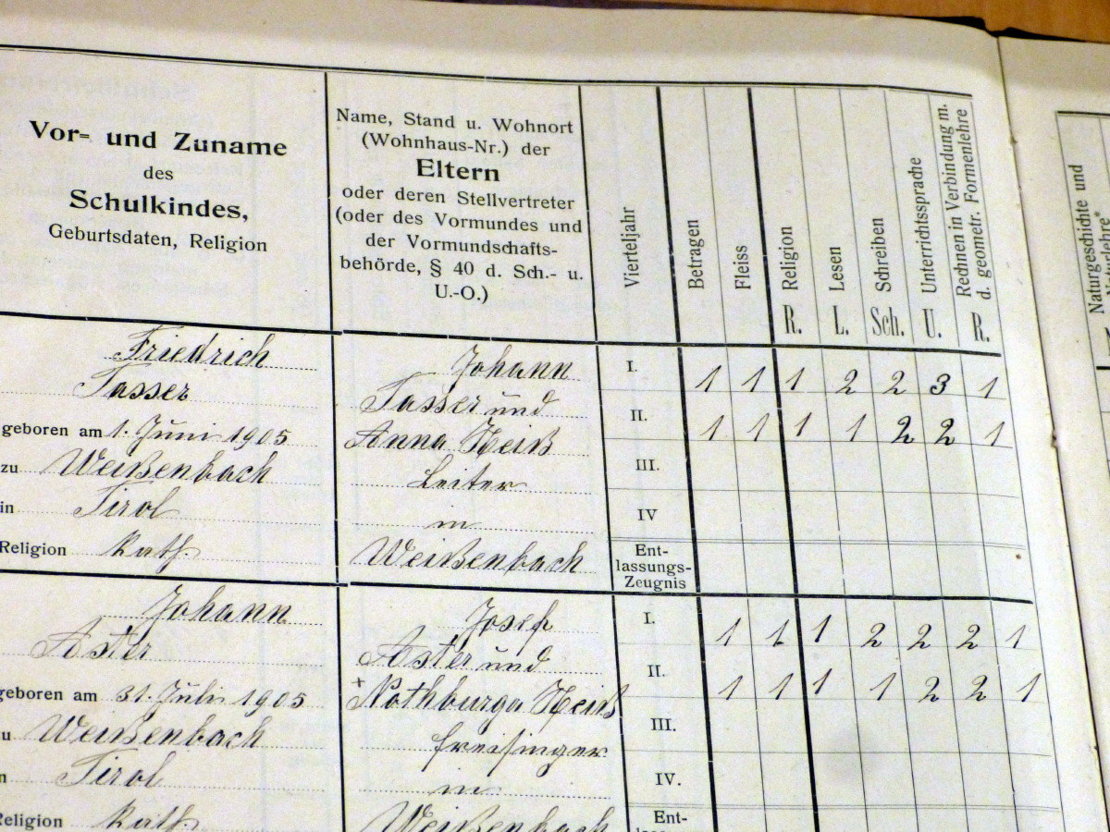 Vor= und Zuname
des
Schulkindes,
Geburtsdaten, Religion
Name, Stand u. Wohnort
(Wohnhaus-Nr.) der
Eltern
oder deren Stellvertreter
(oder des Vormundes und
der Vormundschafts-
behörde, § 40 d. Sch.- u.
U.-O.)
Vierteljahr
Betragen
Fleiss
Religion
R.
Lesen
L.
Schreiben
Sch.
Unterrichtssprache
U.
Rechnen in Verbindung m.
d. geometr. Formenlehre
R.
Naturgeschichte und
Naturlehre*
Friedrich
Tasser
geboren am 1. Juni 1905
zu Weißenbach
in Tirol
Religion Kath.
Johann
Tasser und
Anna Heiß
Leiter
in
Weißenbach
I. 1 1 1 2 2 3 1
II. 1 1 1 1 2 2 1
III.
IV
Ent-
lassungs-
Zeugnis
Johann
Aster
geboren am 31. Juli 1905
zu Weißenbach
in Tirol
Religion Kath.
Josef
Aster und
+ Nothburga Heiß
in
Weißenbach
I. 1 1 1 2 2 2 1
II. 1 1 1 1 2 2 1
III.
IV.
Ent-